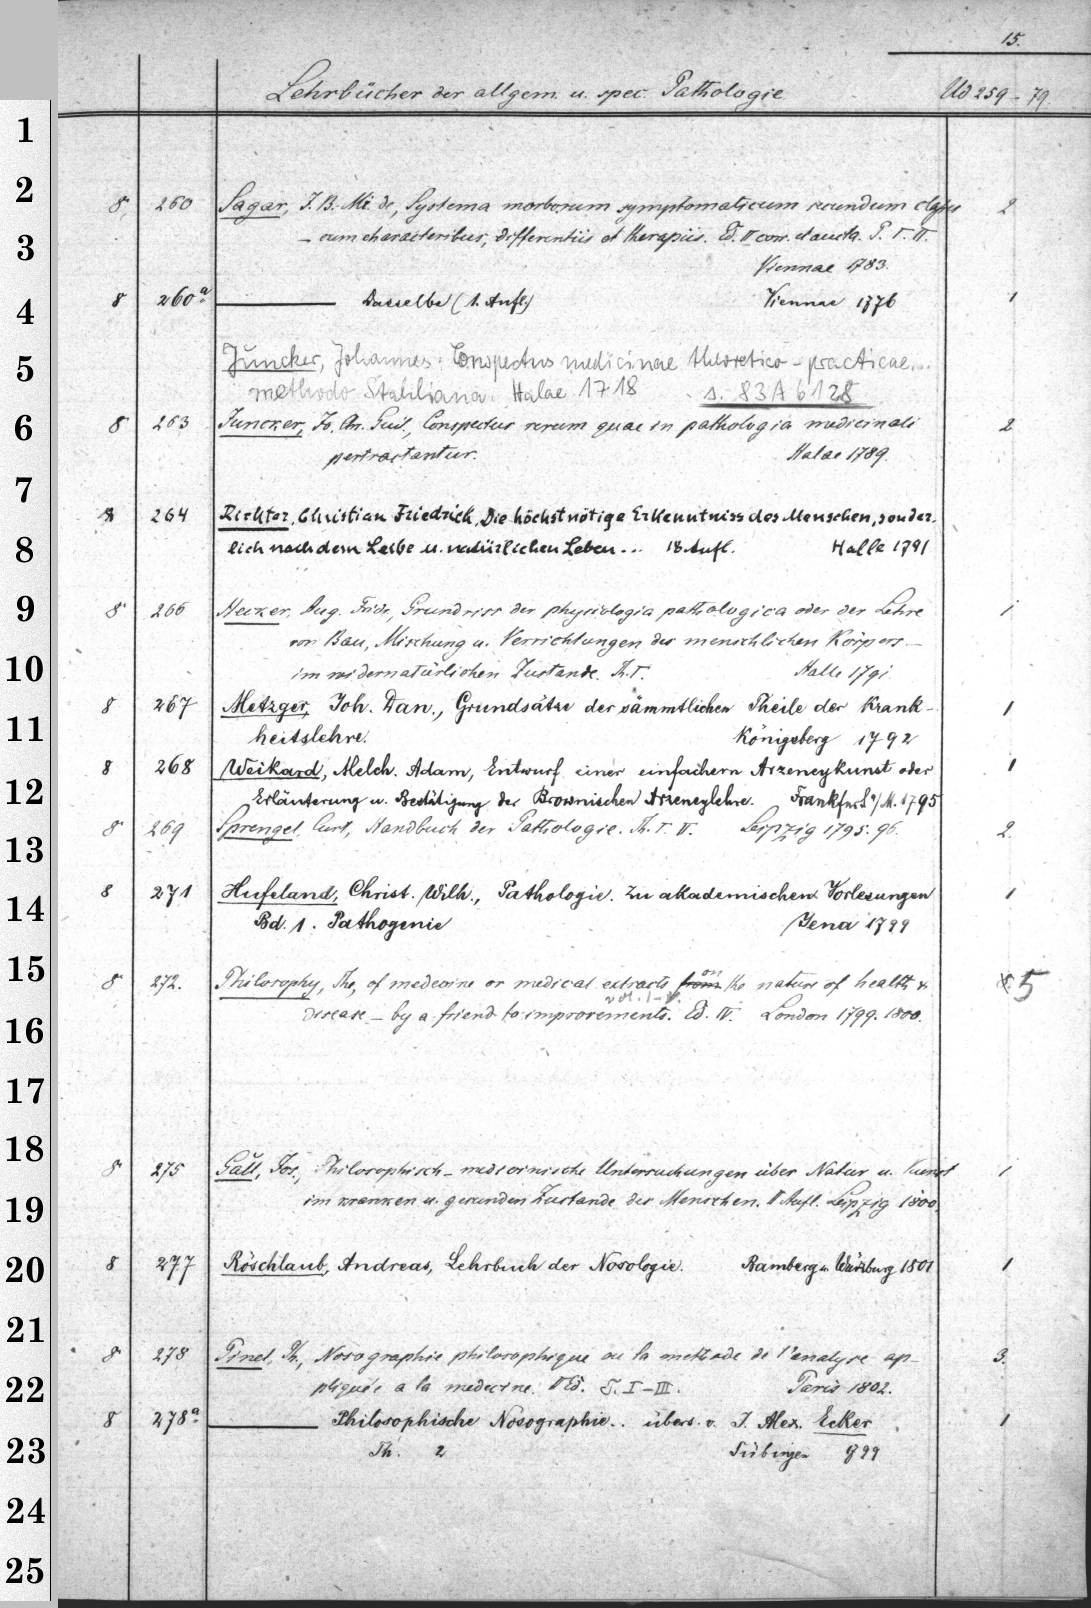 15.
Lehrbücher der allgem. u. spec. Pathologie Ud 259-79
1
2
8 260 Sagar, J. B. Mi. de, Systema morborum symptomaticum secundum classes 2
3 - cum characteribus, differentiis et therapiis. Ed. II corr. et aucta. P. I. II.
Viennae 1783.
4 8 260a Dasselbe (1. Aufl.) Viennae 1776 1
5 Juncker, Johannes: Conspectus medicinae theoretico-practicae...
methodo Stahliana. Halae 1718 s. 83 A 6128
6 8 263 Juncker, Jo. Chr. Guil, Conspectus rerum quae in pathologia medicinali 2
pertractantur. Halae 1789.
7
8 264 Richter, Christian Friedrich, Die höchst nötige Erkenntniss des Menschen, sonder-
8 lich nach dem Leibe u. natürlichen Leben... 18 Aufl. Halle 1791
9 8 266 Hecker, Aug. Fridr, Grundriss der physiologia pathologica oder der Lehre 1
von Bau, Mischung u. Verrichtungen des menschlichen Körpers -
10 im widernatürlichen Zustande. Th. I. Halle 1791
8 267 Metzger, Joh. Dan., Grundsätze der sämmtlichen Theile der Krank- 1
11 heitslehre. Königsberg 1792
8 268 Weikard, Melch. Adam, Entwurf einer einfachern Arzeneykunst oder 1
12 Erläuterung u. Bestätigung der Brownischen Arzeneylehre. Frankfurt a/M. 1795
8 269 Sprengel, Curt, Handbuch der Pathologie. Th. I. II. Leipzig 1795. 96. 2.
13
8 271 Hufeland, Christ. Wilh., Pathologie. Zu akademischen Vorlesungen 1
14 Bd. 1. Pathogenie Jena 1799
15 8 272. Philosophy, The, of medecine or medical extracts from on the nature of health & 5
vol. I-V.
16 disease - by a friend to improvements. Ed. IV. London 1799. 1800.
17
18 8 275 Gall, Jos., Philosophisch-medicinische Untersuchungen über Natur u. Kunst 1
19 im kranken u. gesunden Zustande des Menschen. II Aufl. Leipzig 1800.
20 8 277 Röschlaub, Andreas, Lehrbuch der Nosologie. Bamberg u. Würzburg 1801 1
21
8 278 Pinel, Ph., Nosographie philosophique ou la methode de l'analyse ap- 3.
22 pliquée a la medecine. II Ed. T. I-III. Paris 1802.
8 278a Philosophische Nosographie.. übers. v. J. Alex. Ecker 1
23 Th. 2 Tübingen 1799
24
25